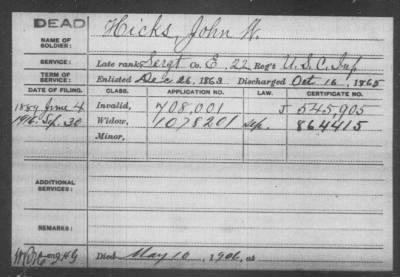 DEAD
NAME OF SOLDIER: Hicks, John W.
SERVICE: Late rank, Sergt Co. E, 22 Reg't U.S.C. Inf
TERM OF SERVICE: Enlisted Dec 26, 1863 Discharged Oct 16, 1865
DATE OF FILING. CLASS. APPLICATION NO. LAW. CERTIFICATE NO.
1889 June 4 Invalid, 708,001 J 545,905
1916. Sep. 30 Widow, 1078201 864415
Minor,
ADDITIONAL SERVICES:
REMARKS:
Died May 10, 1906, at